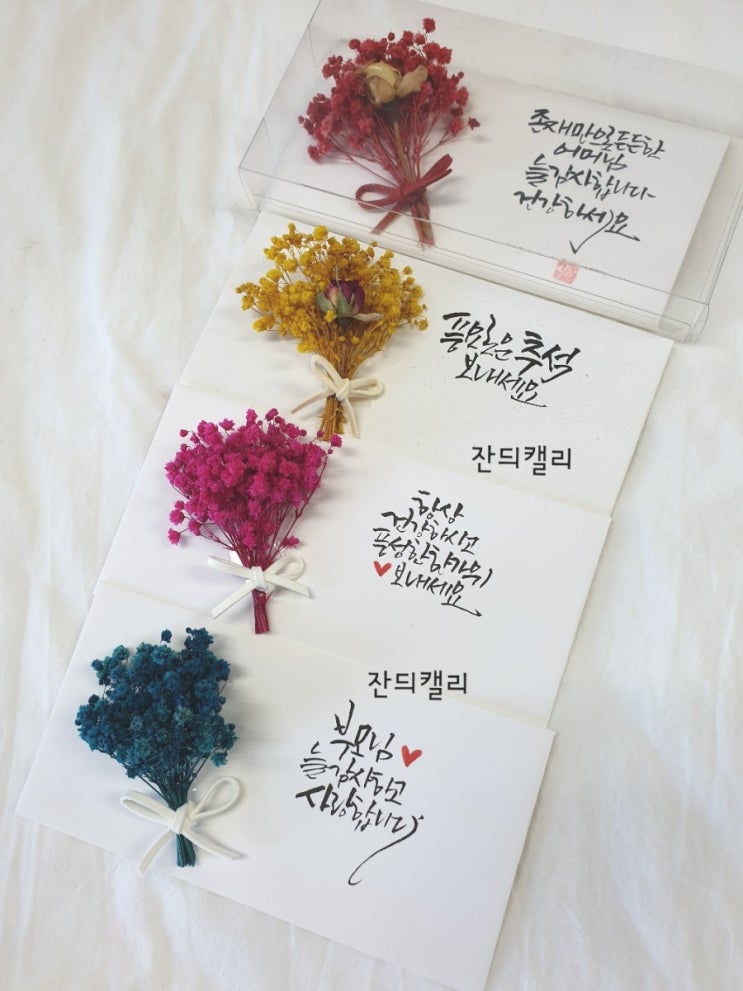 존재만으로든든한
어머님
늘감사합니다
건강하세요
풍요로운 추석
보내세요
잔듸캘리
항상
건강하시고
풍성한한가위
보내세요
잔듸캘리
부모님
늘감사하고
사랑합니다